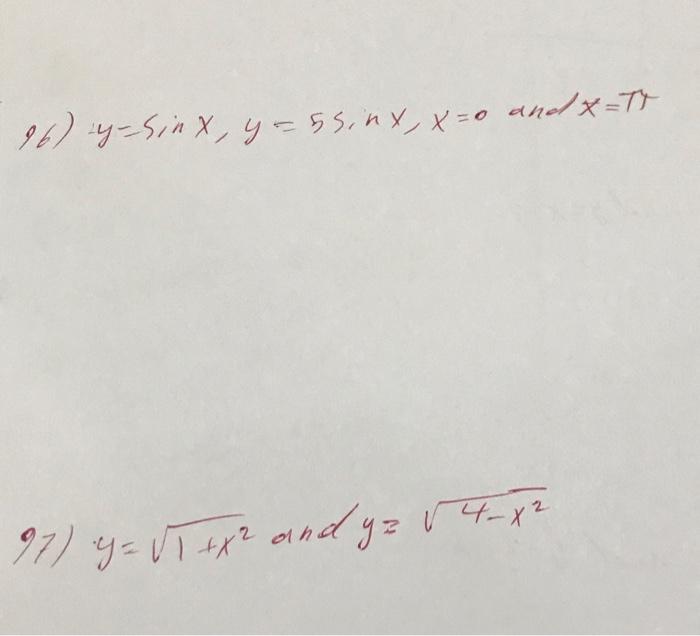 96) y=sinx, y=5sinx, x=0 and x=π
97) y=√1+x² and y=√4-x²